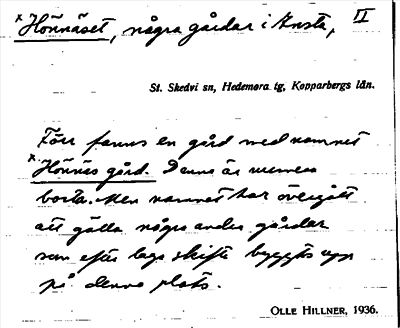 x Hönnäset, några gårdar i Arsta, II
St. Skedvi sn, Hedemora tg, Kopparbergs län.
Förr fanns en gård med namnet
x Hönnäs gård. Denna är numera
borta. Men namnet har övergått
att gälla några andra gårdar
som efter laga skifte byggts upp
på denna plats.
OLLE HILLNER, 1936.